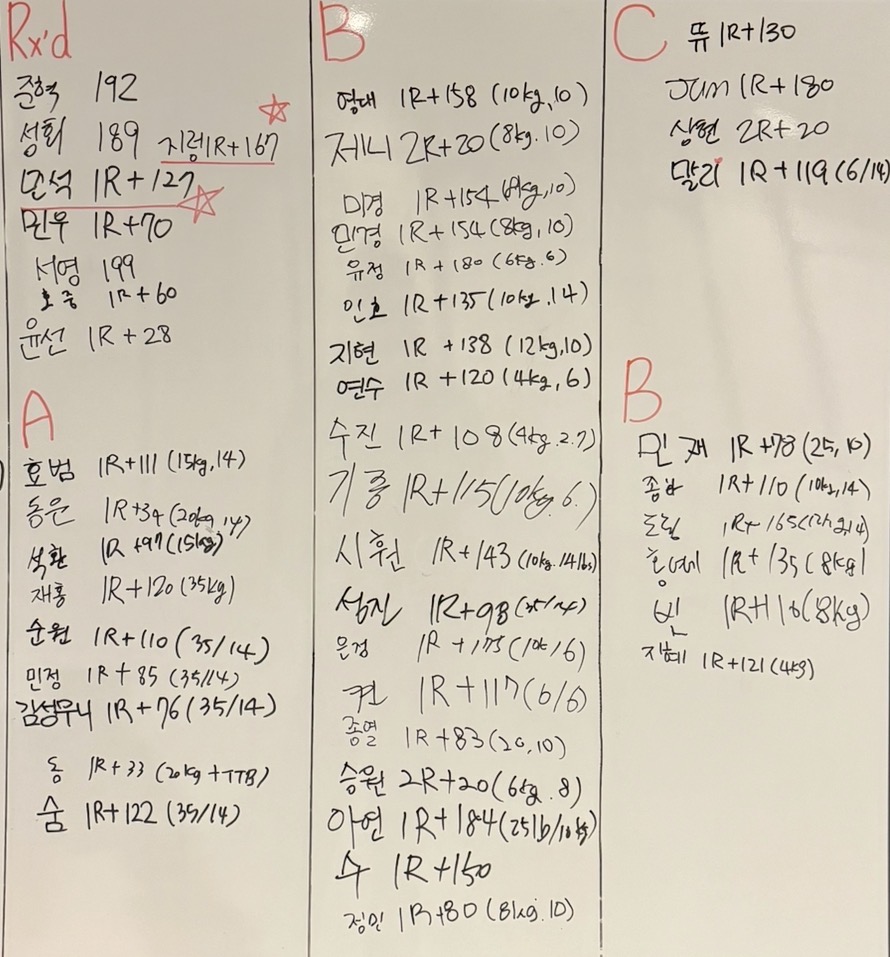 Rx'd
준혁 192
성회 189 지렁 1R+167
민석 1R+127
민우 1R+70
서영 199
호중 1R+60
윤선 1R+28
A
효범 1R+111 (15kg, 14)
동운 1R+34 (20kg, 14)
석환 1R+97 (15kg)
재홍 1R+120 (35kg)
순원 1R+110 (35/14)
민정 1R+85 (35/14)
김성우니 1R+76 (35/14)
동 1R+33 (20kg+TTB)
숨 1R+122 (35/14)
B
영대 1R+158 (10kg, 10)
제니 2R+20 (8kg. 10)
미경 1R+154 (8kg, 10)
민경 1R+154 (8kg, 10)
유정 1R+180 (6kg.6)
인호 1R+135 (10kg, 14)
지현 1R+138 (12kg, 10)
연수 1R+120 (4kg, 6)
수진 1R+108 (4kg.2.7)
기홍 1R+115 (10kg.6.)
시훤 1R+143 (10kg.14lbs)
성진 1R+98 (35/14)
은정 1R+175
퀸 1R+117 (6/6)
종열 1R+83 (20, 10)
승원 2R+20 (6kg.8)
아연 1R+184 (25lb/10kg)
수 1R+150
정민 1R+80 (8kg.10)
C
뜌 1R+130
Jun 1R+180
상현 2R+20
말리 1R+119 (6/14)
B
민재 1R+78 (25, 10)
1R+110 (10kg, 14)
도림 1R+165
홍예 1R+135 (8kg)
빈 1R+116 (8kg)
지혜 1R+121 (4kg)